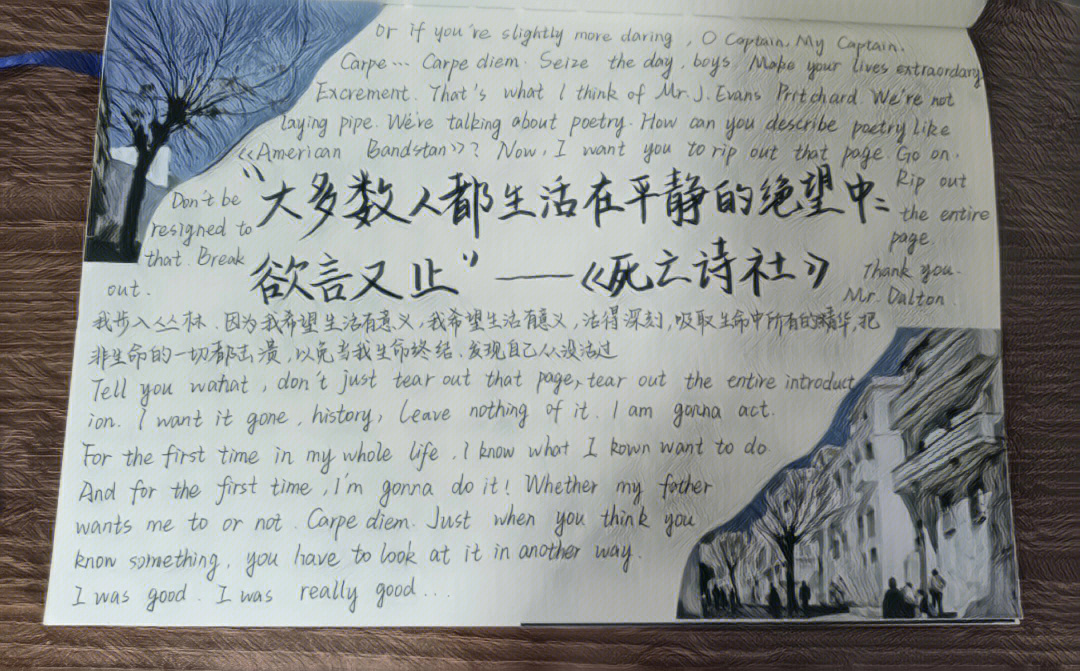 Or if you're slightly more daring, O Captain, My Captain.
Carpe... Carpe diem. Seize the day, boys. Make your lives extraordary
Excrement. That's what I think of Mr. J. Evans Pritchard. We're not
laying pipe. We're talking about poetry. How can you describe poetry like
《American Bandstan》? Now, I want you to rip out that page. Go on.
Rip out
the entire
page.
Thank you.
Mr. Dalton.
Don't be
resigned to
that. Break
out.
“大多数人都生活在平静的绝望中:
欲言又止”——《死亡诗社》
我步入丛林、因为我希望生活有意义,我希望生活有意义,活得深刻,吸取生命中所有的精华,把
非生命的一切都击溃,以免当我生命终结、发现自己从没活过
Tell you wahat, don't just tear out that page, tear out the entire introduct
ion. I want it gone, history, Leave nothing of it. I am gonna act.
For the first time in my whole life, I know what I kown want to do
And for the first time, I'm gonna do it! Whether my father
wants me to or not. Carpe diem. Just when you think you
know something, you have to look at it in another way.
I was good. I was really good...